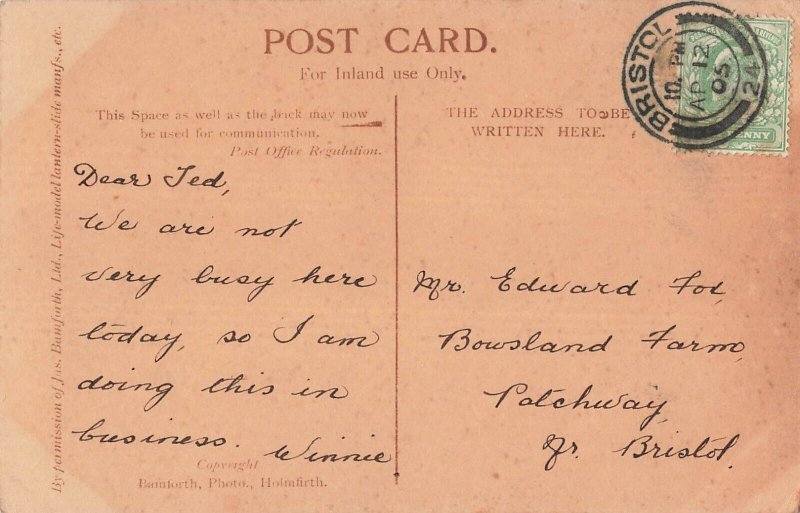 POST CARD.
For Inland use Only.
This Space as well as the back may now
be used for communication.
Post Office Regulation.
THE ADDRESS TO BE
WRITTEN HERE.
BRISTOL
10. PM
AP 12
05
24
PENNY
Dear Ted,
We are not
very busy here
today, so I am
doing this in
business. Winnie
Mr. Edward Fox,
Bowsland Farm,
Patchway,
Nr. Bristol.
Copyright
Bamforth, Photo., Holmfirth.
By permission of Jas. Bamforth, Ltd., Life-model lantern-slide manfs., etc.